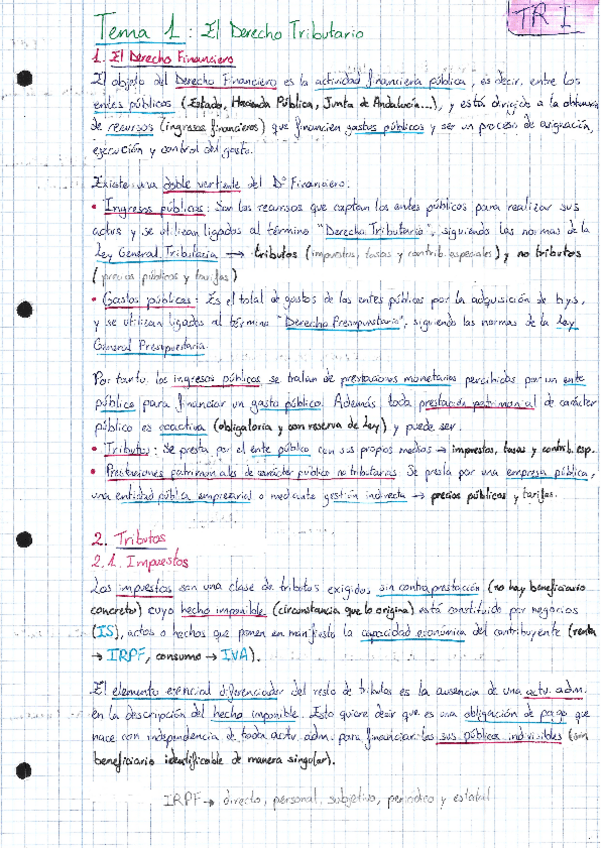 TR I
Tema 1: El Derecho Tributario
1. El Derecho Financiero
El objeto del Derecho Financiero es la actividad financiera pública, es decir, entre los
entes públicos (Estado, Hacienda Pública, Junta de Andalucía...), y está dirigido a la obtención
de recursos (ingresos financieros) que financien gastos públicos y ser un proceso de asignación,
ejecución y control del gasto.
Existe una doble vertiente del Dº Financiero.
• Ingresos públicos: Son los recursos que captan los entes públicos para realizar sus
actvs y se utilizan ligados al término "Derecho Tributario", siguiendo las normas de la
Ley General Tributaria → tributos (impuestos, tasas y contrib. especiales) y no tributos
(precios públicos y tarifas)
• Gastos públicos: Es el total de gastos de los entes públicos por la adquisición de b y s,
y se utilizan ligados al término "Derecho Presupuestario", siguiendo las normas de la Ley
General Presupuestaria.
Por tanto, los ingresos públicos se tratan de prestaciones monetarias percibidas por un ente
público para financiar un gasto público. Además, toda prestación patrimonial de carácter
público es coactiva (obligatoria y con reserva de Ley) y puede ser:
• Tributos: Se presta por el ente público con sus propios medios → impuestos, tasas y contrib. esp.
• Prestaciones patrimoniales de carácter público no tributarias: Se presta por una empresa pública,
una entidad pública empresarial o mediante gestión indirecta → precios públicos y tarifas.
2. Tributos
2.1. Impuestos
Los impuestos son una clase de tributos exigidos sin contraprestación (no hay beneficiario
concreto) cuyo hecho imponible (circunstancia que lo origina) está constituido por negocios
(IS), actos o hechos que ponen en manifiesto la capacidad económica del contribuyente (renta
→ IRPF, consumo → IVA).
El elemento esencial diferenciador del resto de tributos es la ausencia de una actv. adm.
en la descripción del hecho imponible. Esto quiere decir que es una obligación de pago que
nace con independencia de toda actv. adm. para financiar los svs públicos indivisibles (sin
beneficiario identificable de manera singular).
IRPF → directo, personal, subjetivo, periódico y estatal